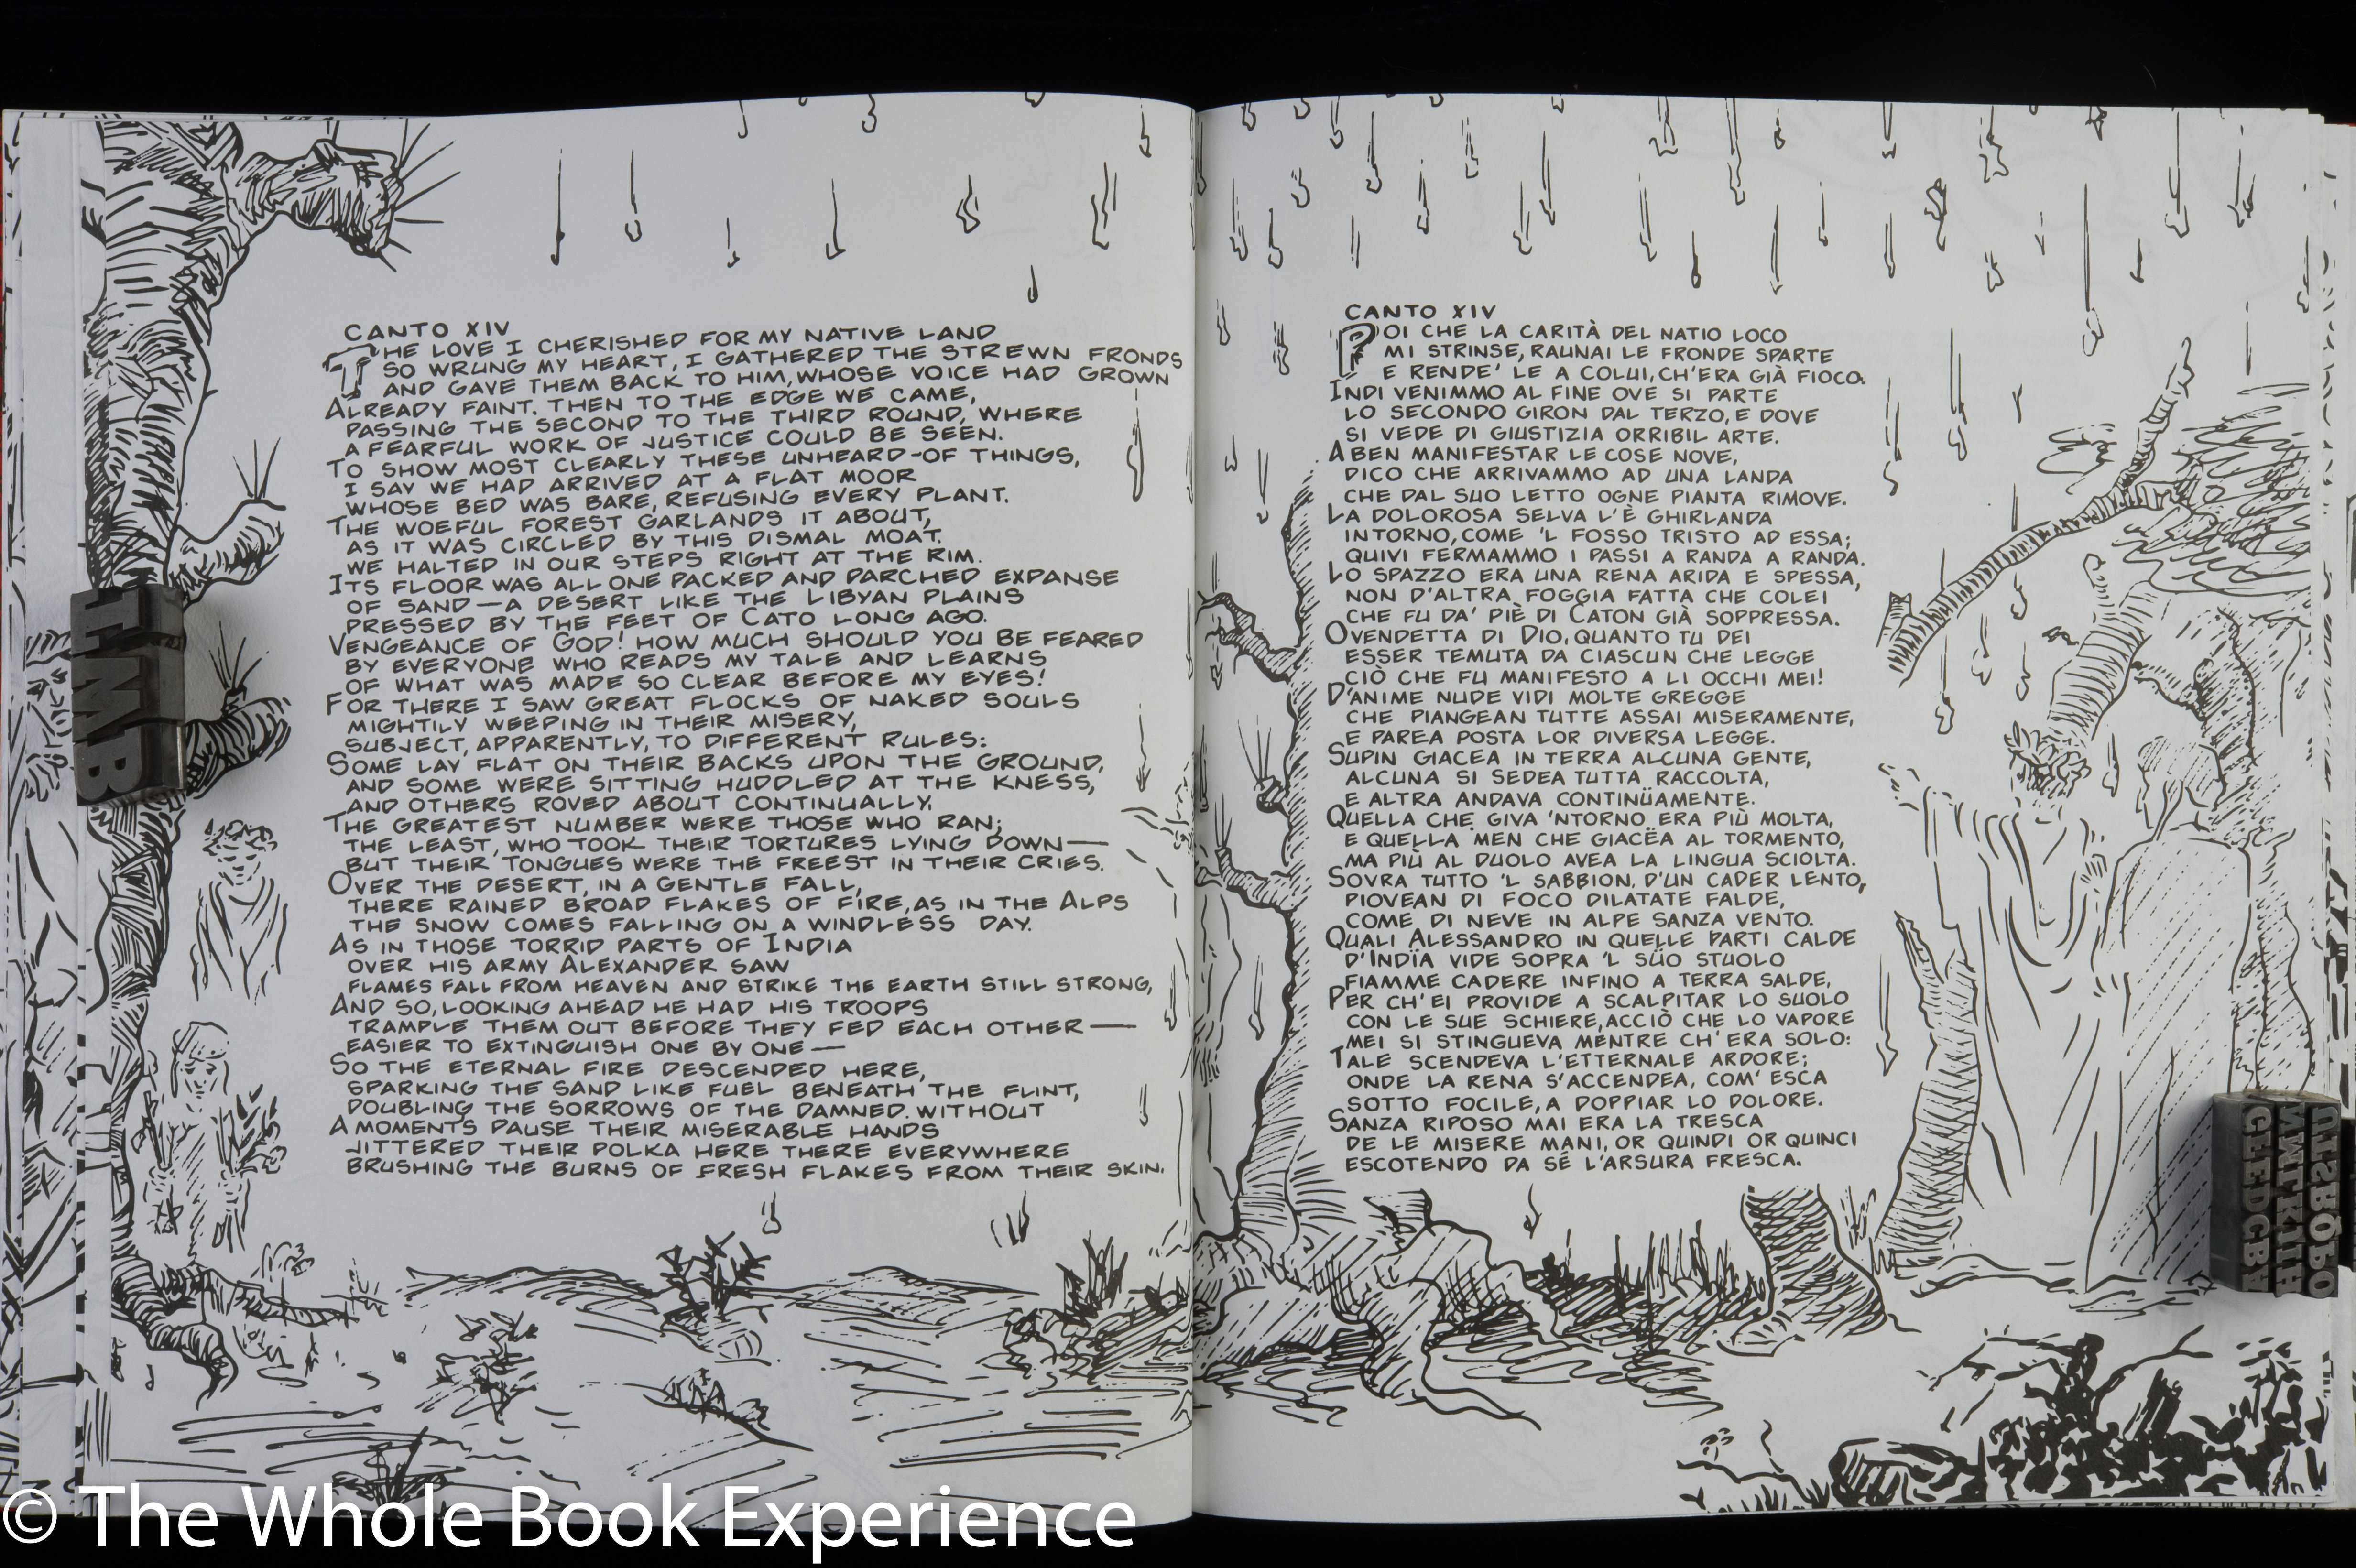 CANTO XIV
THE LOVE I CHERISHED FOR MY NATIVE LAND
SO WRUNG MY HEART, I GATHERED THE STREWN FRONDS
AND GAVE THEM BACK TO HIM, WHOSE VOICE HAD GROWN
ALREADY FAINT. THEN TO THE EDGE WE CAME,
PASSING THE SECOND TO THE THIRD ROUND, WHERE
A FEARFUL WORK OF JUSTICE COULD BE SEEN.
TO SHOW MOST CLEARLY THESE UNHEARD-OF THINGS,
I SAY WE HAD ARRIVED AT A FLAT MOOR
WHOSE BED WAS BARE, REFUSING EVERY PLANT.
THE WOEFUL FOREST GARLANDS IT ABOUT,
AS IT WAS CIRCLED BY THIS DISMAL MOAT.
WE HALTED IN OUR STEPS RIGHT AT THE RIM.
ITS FLOOR WAS ALL ONE PACKED AND PARCHED EXPANSE
OF SAND—A DESERT LIKE THE LIBYAN PLAINS
PRESSED BY THE FEET OF CATO LONG AGO.
VENGEANCE OF GOD! HOW MUCH SHOULD YOU BE FEARED
BY EVERYONE WHO READS MY TALE AND LEARNS
OF WHAT WAS MADE SO CLEAR BEFORE MY EYES!
FOR THERE I SAW GREAT FLOCKS OF NAKED SOULS
MIGHTILY WEEPING IN THEIR MISERY,
SUBJECT, APPARENTLY, TO DIFFERENT RULES:
SOME LAY FLAT ON THEIR BACKS UPON THE GROUND,
AND SOME WERE SITTING HUDDLED AT THE KNESS,
AND OTHERS ROVED ABOUT CONTINUALLY.
THE GREATEST NUMBER WERE THOSE WHO RAN;
THE LEAST, WHO TOOK THEIR TORTURES LYING DOWN—
BUT THEIR TONGUES WERE THE FREEST IN THEIR CRIES.
OVER THE DESERT, IN A GENTLE FALL,
THERE RAINED BROAD FLAKES OF FIRE, AS IN THE ALPS
THE SNOW COMES FALLING ON A WINDLESS DAY.
AS IN THOSE TORRID PARTS OF INDIA
OVER HIS ARMY ALEXANDER SAW
FLAMES FALL FROM HEAVEN AND STRIKE THE EARTH STILL STRONG,
AND SO, LOOKING AHEAD HE HAD HIS TROOPS
TRAMPLE THEM OUT BEFORE THEY FED EACH OTHER—
EASIER TO EXTINGUISH ONE BY ONE—
SO THE ETERNAL FIRE DESCENDED HERE,
SPARKING THE SAND LIKE FUEL BENEATH THE FLINT,
DOUBLING THE SORROWS OF THE DAMNED. WITHOUT
A MOMENT'S PAUSE THEIR MISERABLE HANDS
JITTERED THEIR POLKA HERE THERE EVERYWHERE
BRUSHING THE BURNS OF FRESH FLAKES FROM THEIR SKIN.
CANTO XIV
POI CHE LA CARITÀ DEL NATIO LOCO
MI STRINSE, RAUNAI LE FRONDE SPARTE
E RENDE' LE A COLUI, CH'ERA GIÀ FIOCO.
INDI VENIMMO AL FINE OVE SI PARTE
LO SECONDO GIRON DAL TERZO, E DOVE
SI VEDE DI GIUSTIZIA ORRIBIL ARTE.
A BEN MANIFESTAR LE COSE NOVE,
DICO CHE ARRIVAMMO AD UNA LANDA
CHE DAL SUO LETTO OGNE PIANTA RIMOVE.
LA DOLOROSA SELVA L'È GHIRLANDA
INTORNO, COME 'L FOSSO TRISTO AD ESSA;
QUIVI FERMAMMO I PASSI A RANDA A RANDA.
LO SPAZZO ERA UNA RENA ARIDA E SPESSA,
NON D'ALTRA FOGGIA FATTA CHE COLEI
CHE FU DA' PIÈ DI CATON GIÀ SOPPRESSA.
O VENDETTA DI DIO, QUANTO TU DEI
ESSER TEMUTA DA CIASCUN CHE LEGGE
CIÒ CHE FU MANIFESTO A LI OCCHI MEI!
D'ANIME NUDE VIDI MOLTE GREGGE
CHE PIANGEAN TUTTE ASSAI MISERAMENTE,
E PAREA POSTA LOR DIVERSA LEGGE.
SUPIN GIACEA IN TERRA ALCUNA GENTE,
ALCUNA SI SEDEA TUTTA RACCOLTA,
E ALTRA ANDAVA CONTINÜAMENTE.
QUELLA CHE GIVA 'NTORNO ERA PIÙ MOLTA,
E QUELLA MEN CHE GIACËA AL TORMENTO,
MA PIÙ AL DUOLO AVEA LA LINGUA SCIOLTA.
SOVRA TUTTO 'L SABBION, D'UN CADER LENTO,
PIOVEAN DI FOCO DILATATE FALDE,
COME DI NEVE IN ALPE SANZA VENTO.
QUALI ALESSANDRO IN QUELLE PARTI CALDE
D'INDÏA VIDE SOPRA 'L SÜO STUOLO
FIAMME CADERE INFINO A TERRA SALDE,
PER CH'EI PROVIDE A SCALPITAR LO SUOLO
CON LE SUE SCHIERE, ACCIÒ CHE LO VAPORE
MEI SI STINGUEVA MENTRE CH'ERA SOLO:
TALE SCENDEVA L'ETTERNALE ARDORE;
ONDE LA RENA S'ACCENDEA, COM' ESCA
SOTTO FOCILE, A DOPPIAR LO DOLORE.
SANZA RIPOSO MAI ERA LA TRESCA
DE LE MISERE MANI, OR QUINDI OR QUINCI
ESCOTENDO DA SÉ L'ARSURA FRESCA.
© The Whole Book Experience